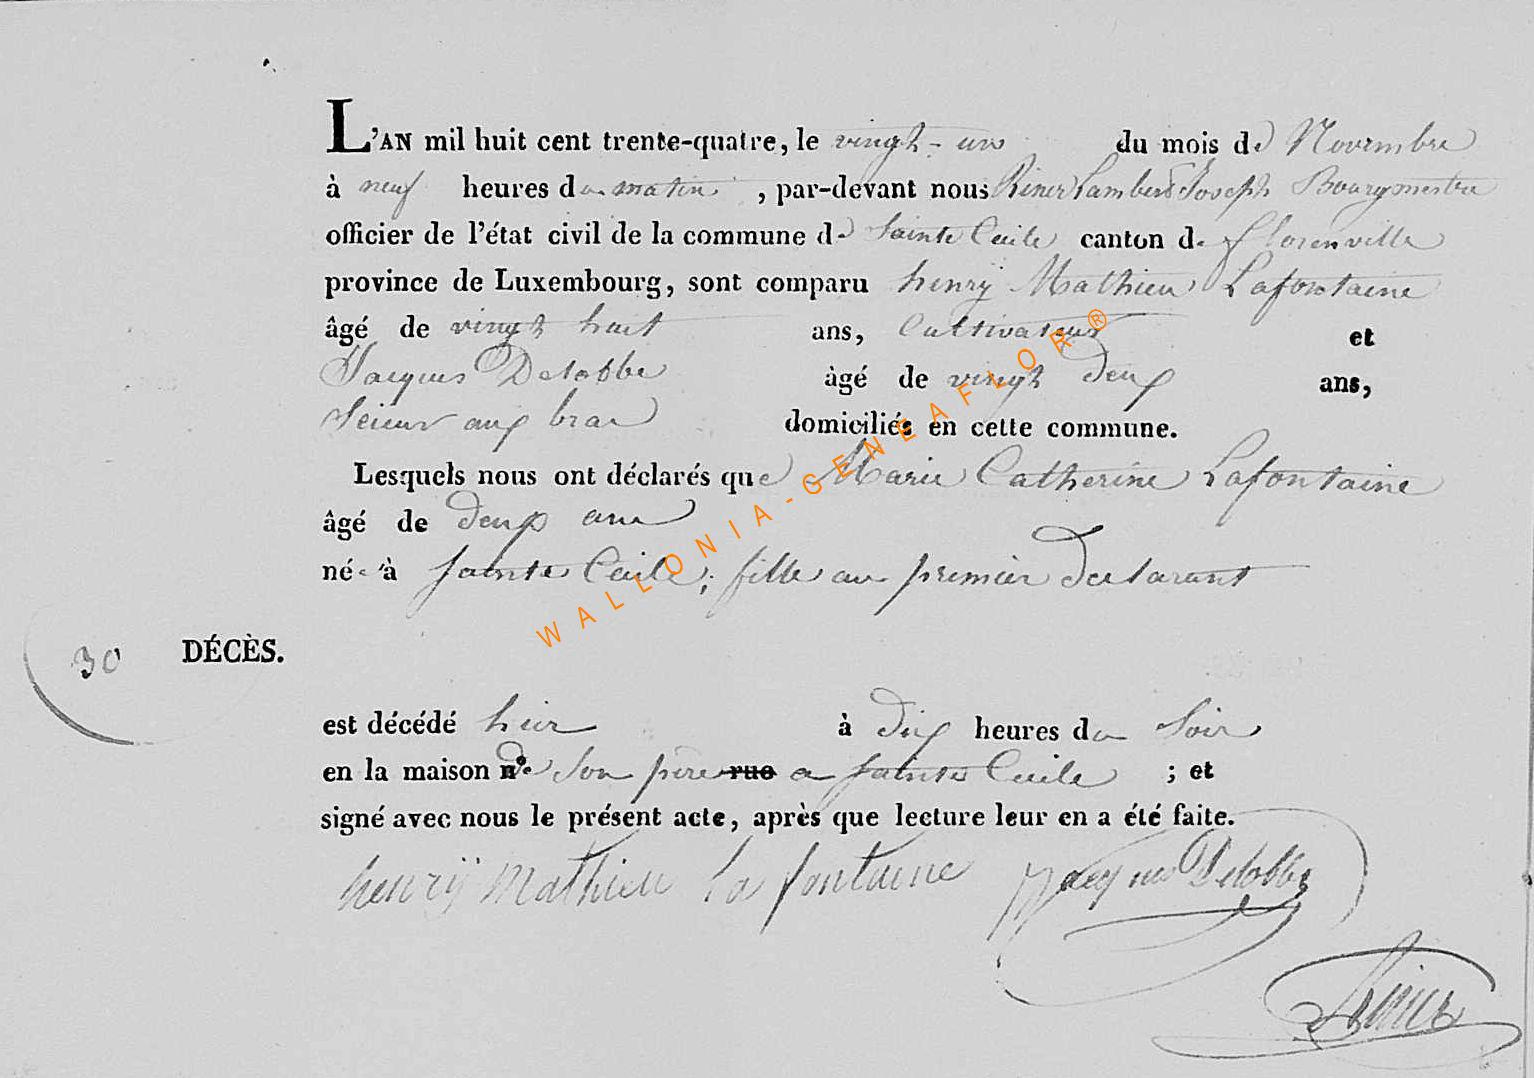 L'AN mil huit cent trente-quatre, le vingt-un du mois de Novembre
à neuf heures du matin, par-devant nous Riner Lambert Joseph Bourgmestre
officier de l'état civil de la commune de Sainte Cecile canton de florenville
province de Luxembourg, sont comparu henrÿ Mathieu Lafontaine
âgé de vingt huit ans, Cultivateur et
Jacques Delobbe âgé de vingt deux ans,
Scieur aux bras domiciliés en cette commune.
Lesquels nous ont déclarés que Marie Catherine Lafontaine
âgé de deux ans
née à Sainte Cecile, fille au premier declarant
30 DÉCÈS.
est décédé hier à dix heures du Soir
en la maison de son pere rue a Sainte Cecile ; et
signé avec nous le présent acte, après que lecture leur en a été faite.
henrÿ mathieu la fontaine Jacques Delobbe
WALLONIA-GENEAFLOR®